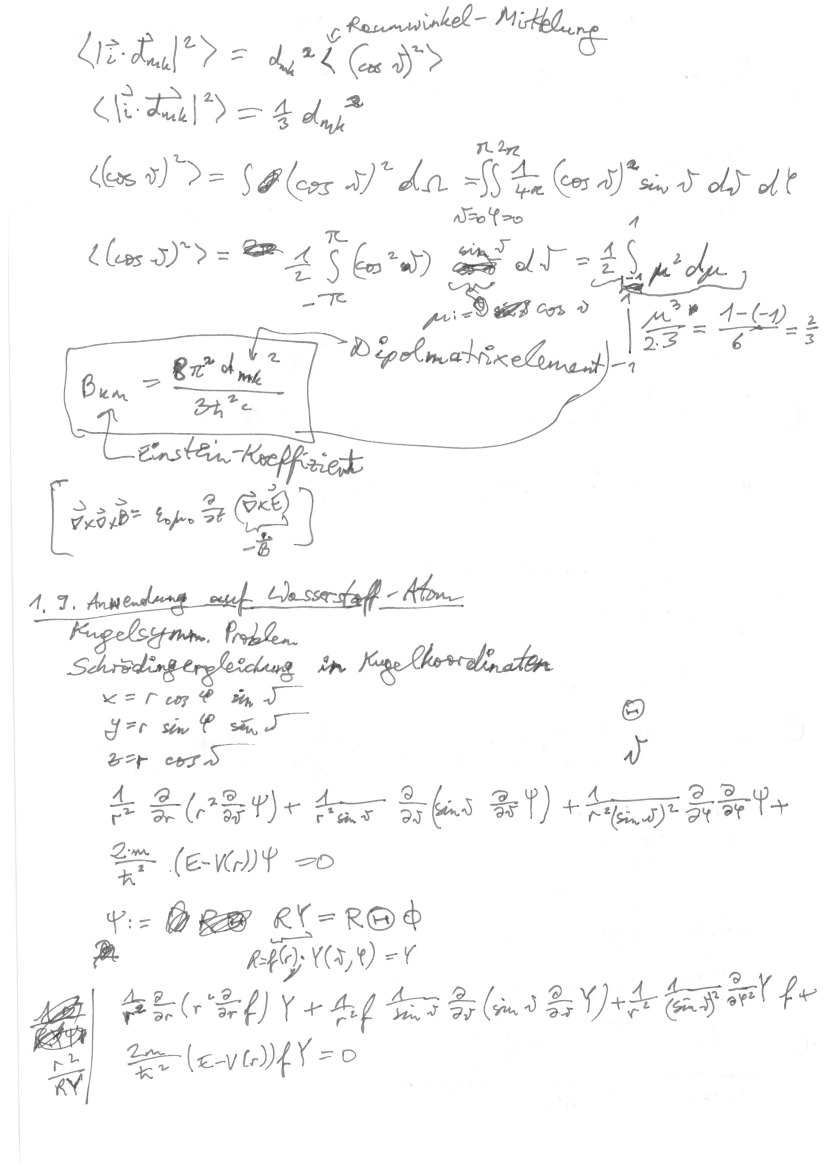 Raumwinkel-Mittelung
⟨|i⃗·d⃗mk|²⟩ = dmk² ⟨(cos ϑ)²⟩
⟨|i⃗·d⃗mk|²⟩ = 1/3 dmk²
⟨(cos ϑ)²⟩ = ∫ (cos ϑ)² dΩ = ∫_{ϑ=0}^{π} ∫_{φ=0}^{2π} 1/4π (cos ϑ)² sin ϑ dϑ dφ
⟨(cos ϑ)²⟩ = 1/2 ∫_{-π}^{π} (cos² ϑ) sin ϑ dϑ = 1/2 ∫_{-1}^{1} μ² dμ
μ := cos ϑ
|_{-1}^{1} μ³/2·3 = 1-(-1)/6 = 2/3
Bkm = 8π² dmk² / 3ħ²c
Dipolmatrixelement
Einstein-Koeffizient
[∇⃗×∇⃗×B⃗ = ε₀μ₀ ∂/∂t (∇⃗×E⃗)]
-Ḃ
1.9. Anwendung auf Wasserstoff-Atom
Kugelsymm. Problem
Schrödingergleichung in Kugelkoordinaten
x = r cos φ sin ϑ
y = r sin φ sin ϑ
Θ
z = r cos ϑ
ϑ
1/r² ∂/∂r (r² ∂/∂ϑ Ψ) + 1/r² sin ϑ ∂/∂ϑ (sin ϑ ∂/∂ϑ Ψ) + 1/r²(sin ϑ)² ∂/∂φ ∂/∂φ Ψ +
2·m/ħ² · (E-V(r))Ψ = 0
Ψ := RY = RΘϕ
R=f(r); Y(ϑ,φ) = Y
1/r² ∂/∂r (r² ∂/∂r f) Y + 1/r² f 1/sin ϑ ∂/∂ϑ (sin ϑ ∂/∂ϑ Y) + 1/r² 1/(sin ϑ)² ∂/∂φ² Y f +
r²/RY | 2m/ħ² (E-V(r)) f Y = 0